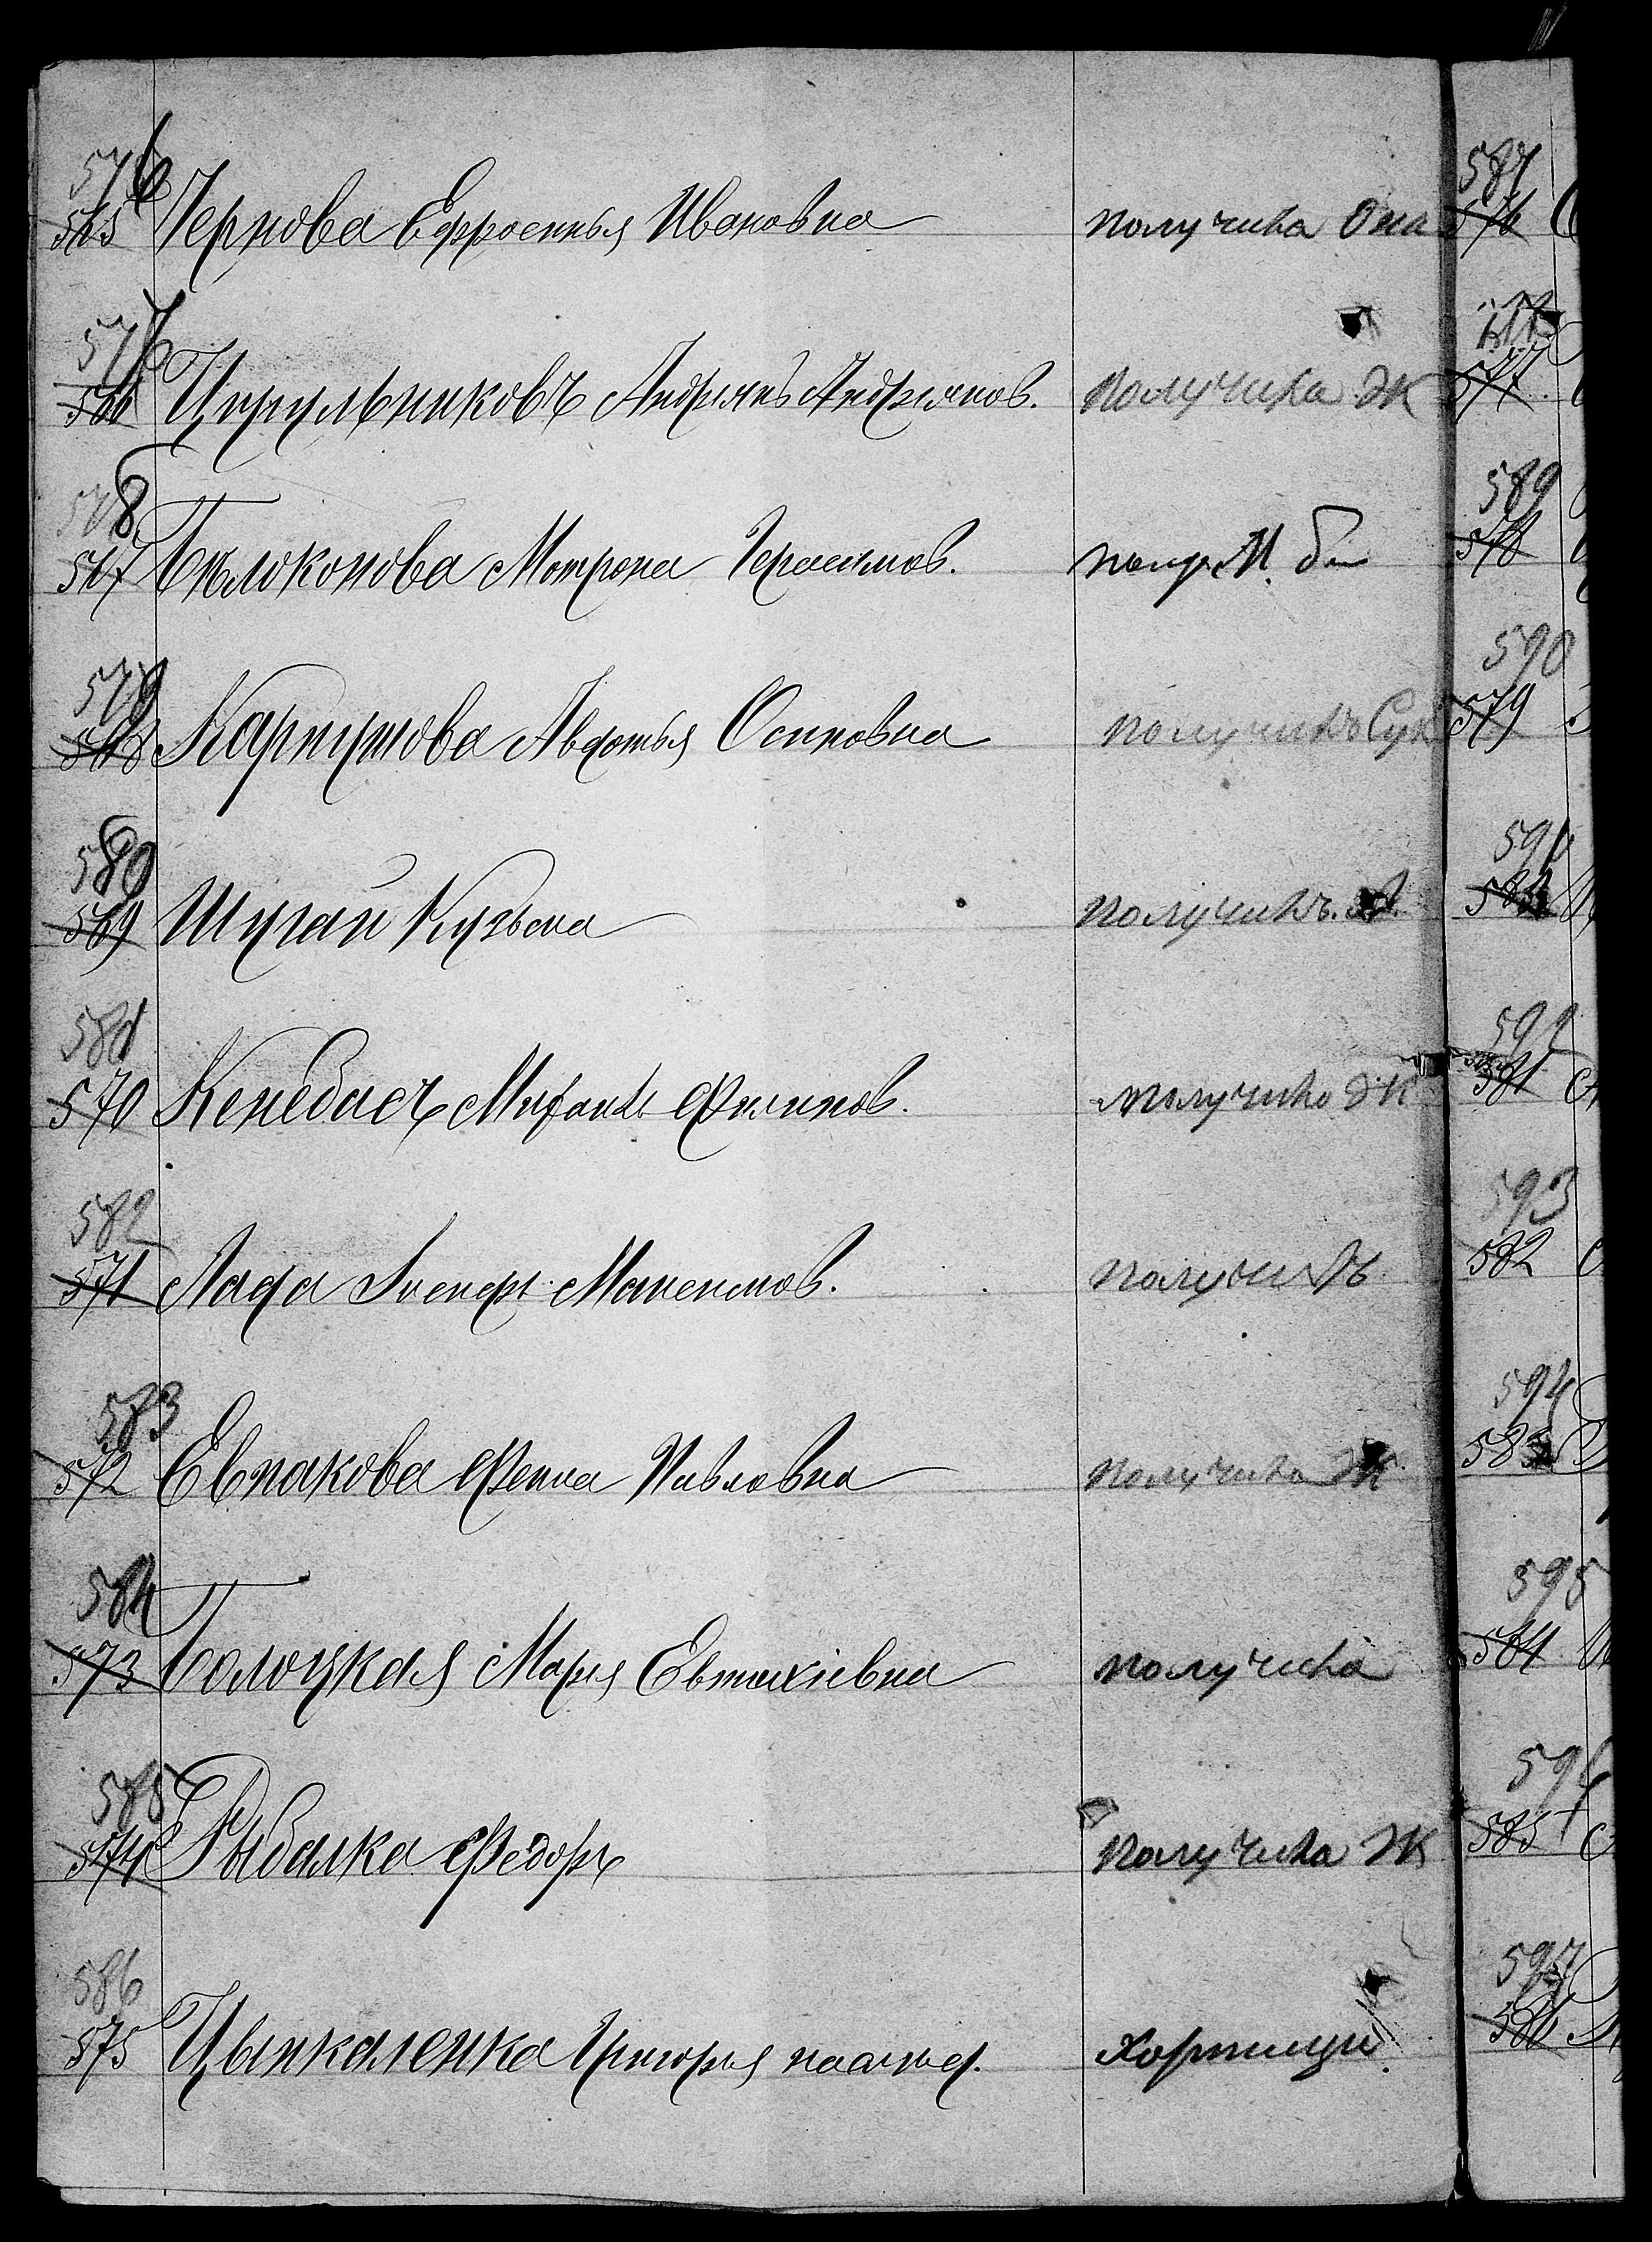 576
565 Чернова Ефросинья Ивановна получила Она
577
566 Цирульниковъ Андріянъ Андріянов. получила Ж
578
567 Бѣлоконова Мотрона Герасимов.
579
568 Карпушова Авдотья Осиповна получилъ Сын
580
569 Шугай Кузьма получилъ.
581
570 Филипов. получила Ж
582
571 Лада Максимов. получилъ
583
572 Евпакова Фекла Павловна получила Ж
584
573 Болоцкая Марія Евтихіевна получила
585
574 Рыбалка Федоръ получила Ж
586
575 Цыпкаленка Григорія наслѣд. Хортици
587
576
577
589
578
590
579
591
592
581
593
582
594
583
595
584
596
585
597
586